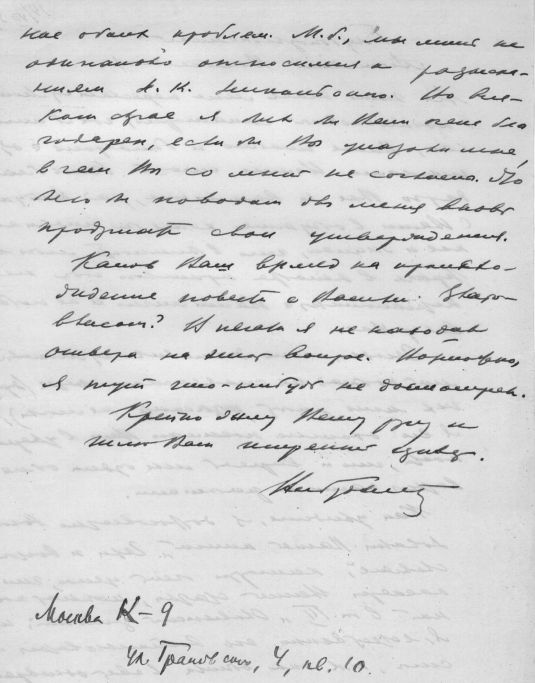 кое обоих проблем. М.б., мы
одинаково относимся к
ниям Н. К. Но вся-
ком случае я был бы Вам очень бла
годарен, если бы Вы указали мне,
в чем Вы со мной не согласны. Это
было бы поводом для меня вновь
продумать свои утверждения.
Каков Ваш взгляд на происхо-
ждение повести о Василии Злато-
власом? В книге я не находил
ответа на этот вопрос. Возможно,
я тут что-нибудь не досмотрел.
Крепко жму Вашу руку и
шлю Вам искренний привет.
Москва К-9
ул. Грановского, 4, кв. 10.